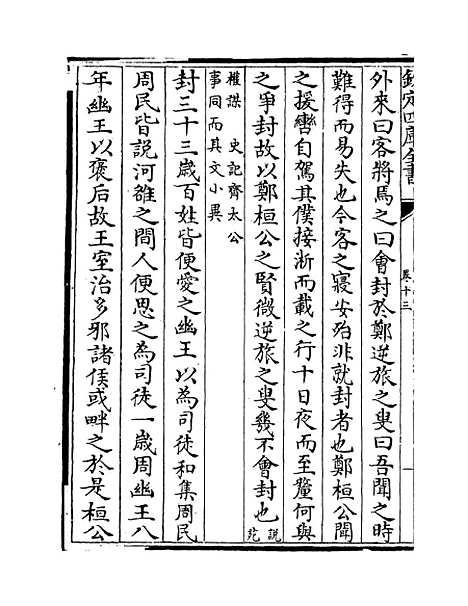 欽定四庫全書
卷十三
外來曰客將焉之曰會封於鄭逆旅之叟曰吾聞之時
難得而易失也今客之寢安殆非就封者也鄭桓公聞
之援轡自駕其僕接淅而載之行十日夜而至釐何與
之爭封故以鄭桓公之賢微逆旅之叟幾不會封也說苑
權謀 史記齊太公
事同而其文小異
封三十三歲百姓皆便愛之幽王以為司徒和集周民
周民皆說河雒之間人便思之為司徒一歲周幽王八
年幽王以褒后故王室治多邪諸侯或畔之於是桓公